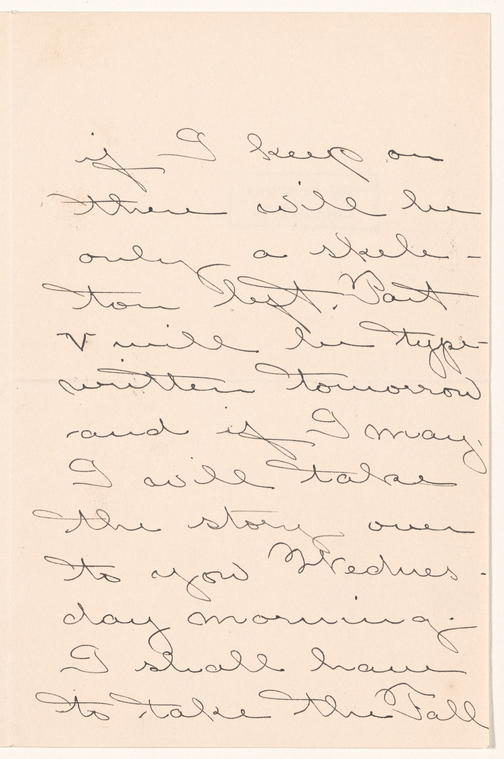 if I keep on
there will be
only a skele-
ton left. Part
V will be type-
written tomorrow
and if I may,
I will take
the story over
to you Wednes-
day morning.
I shall have
to take the Fall